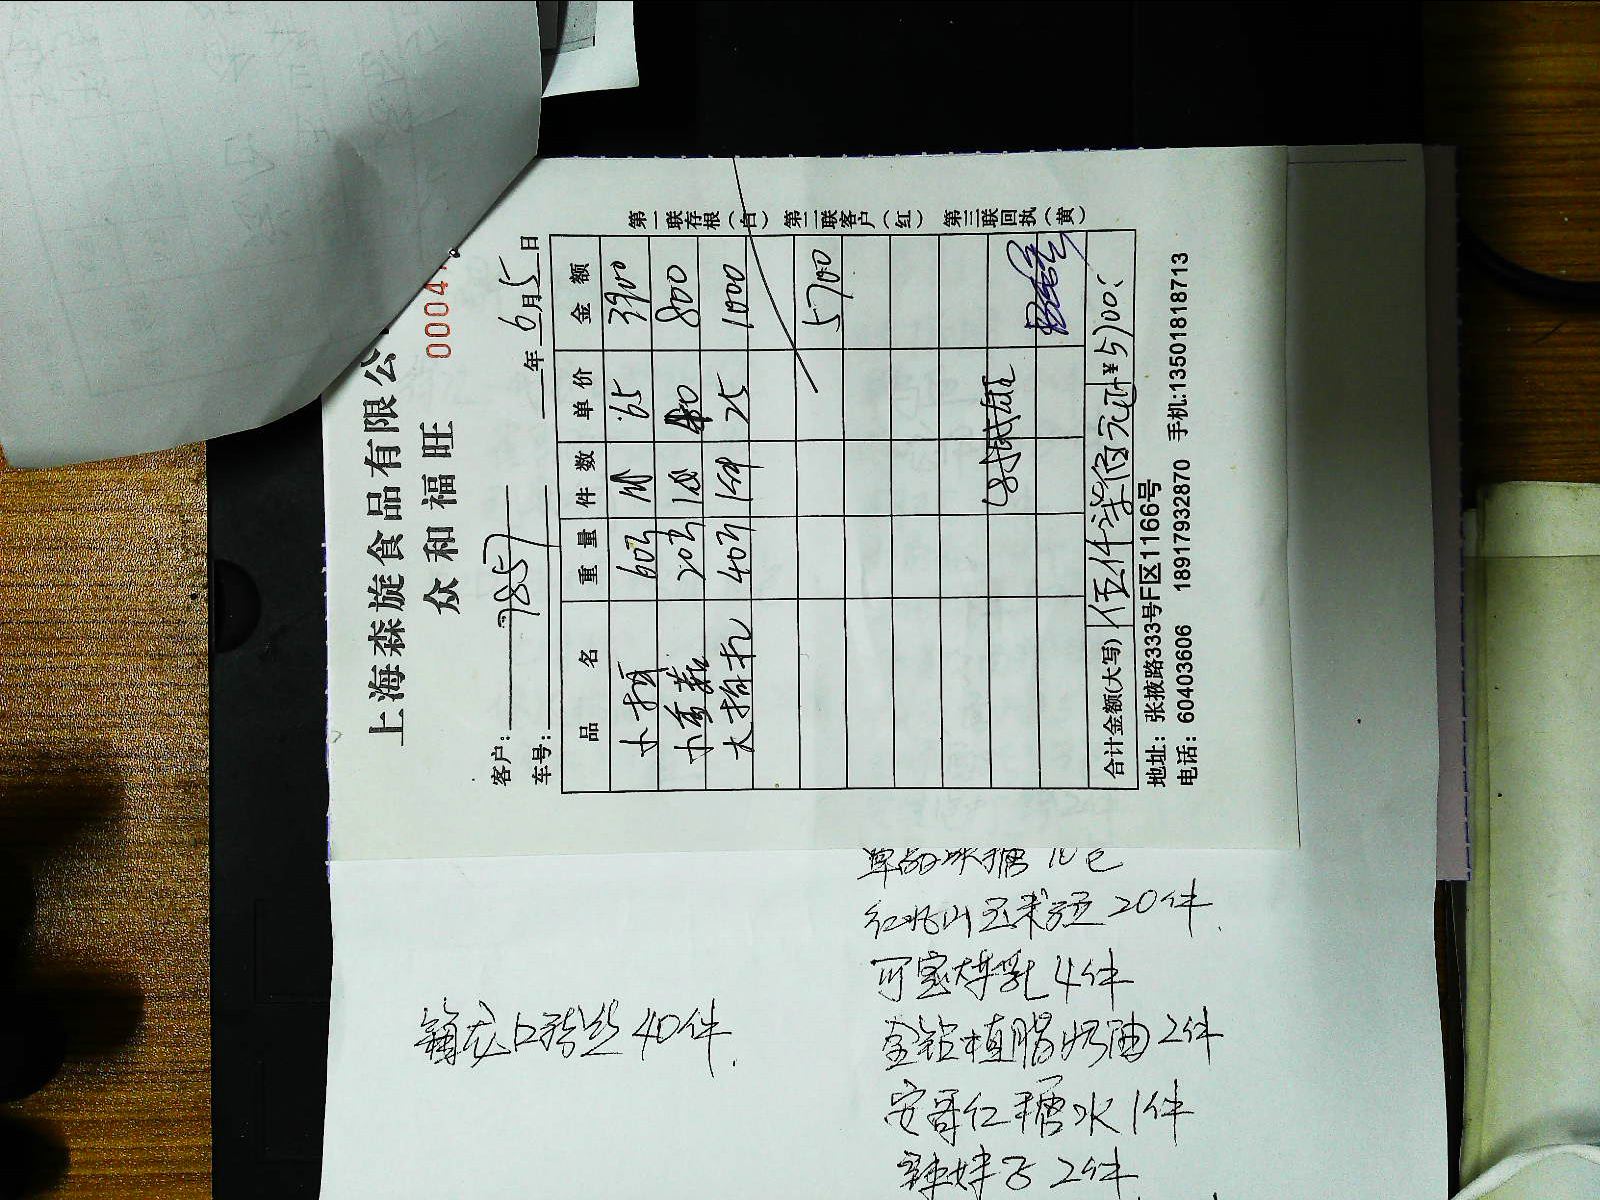 上海森旋食品有限公
众和福旺
0004
客户: 7857
车号:
年 6月5日
品名 重量 件数 单价 金额
小 60 65 3900
小香菇 20 800
大 40 25 1000
5700
合计金额(大写) 伍仟柒佰元正 ¥5700
地址: 张掖路333号F区1166号
电话: 60403606 18917932870 手机:13501818713
第一联存根(白) 第二联客户(红) 第三联回执(黄)
冰糖 10包
20件
4件
金钻植脂奶油 2件
安哥红糖水 1件
辣妹子 2件
龙口粉丝 40件